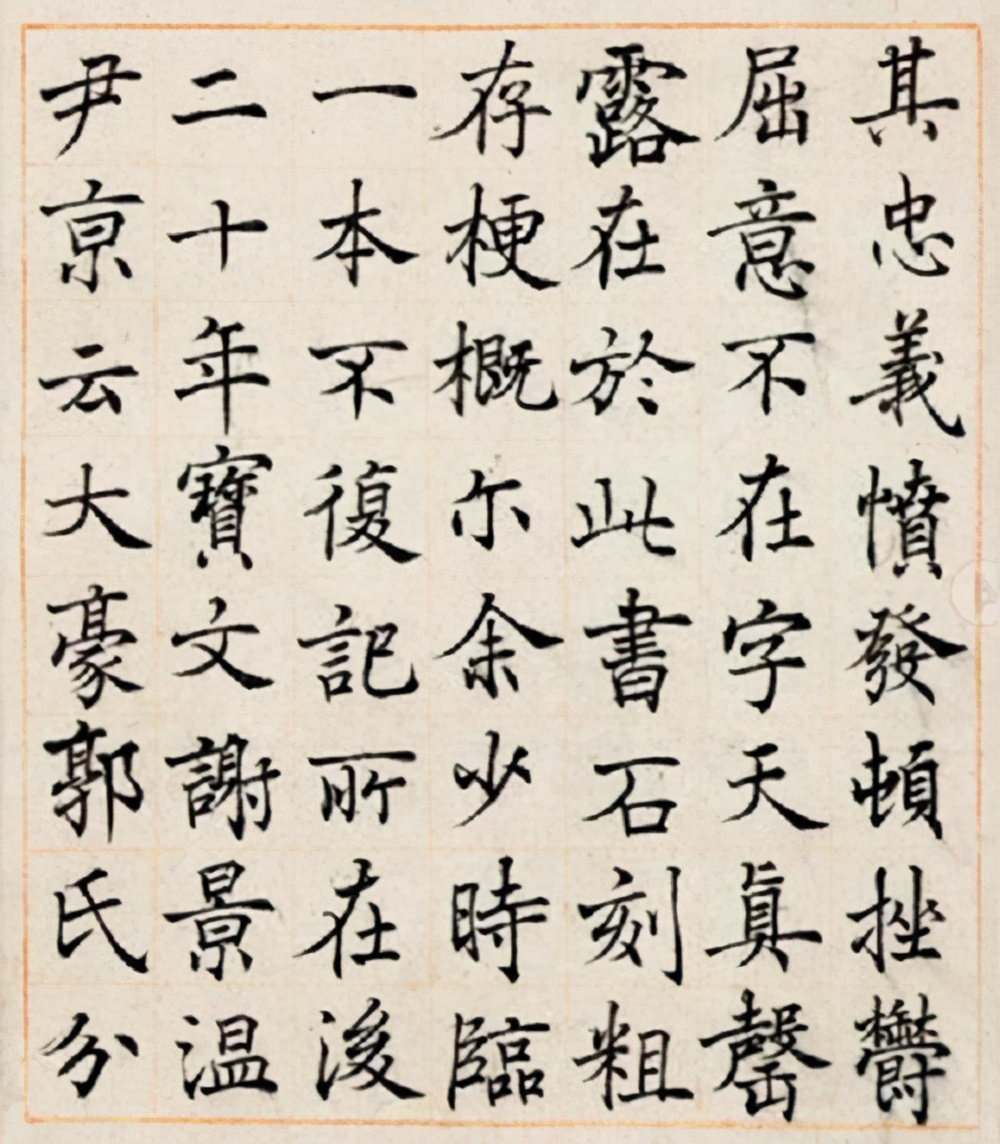 其忠義憤發頓挫鬱
屈意不在字天真罄
露在於此書石刻粗
存梗概尓余少時臨
一本不復記所在後
二十年寶文謝景温
尹亰云大豪郭氏分